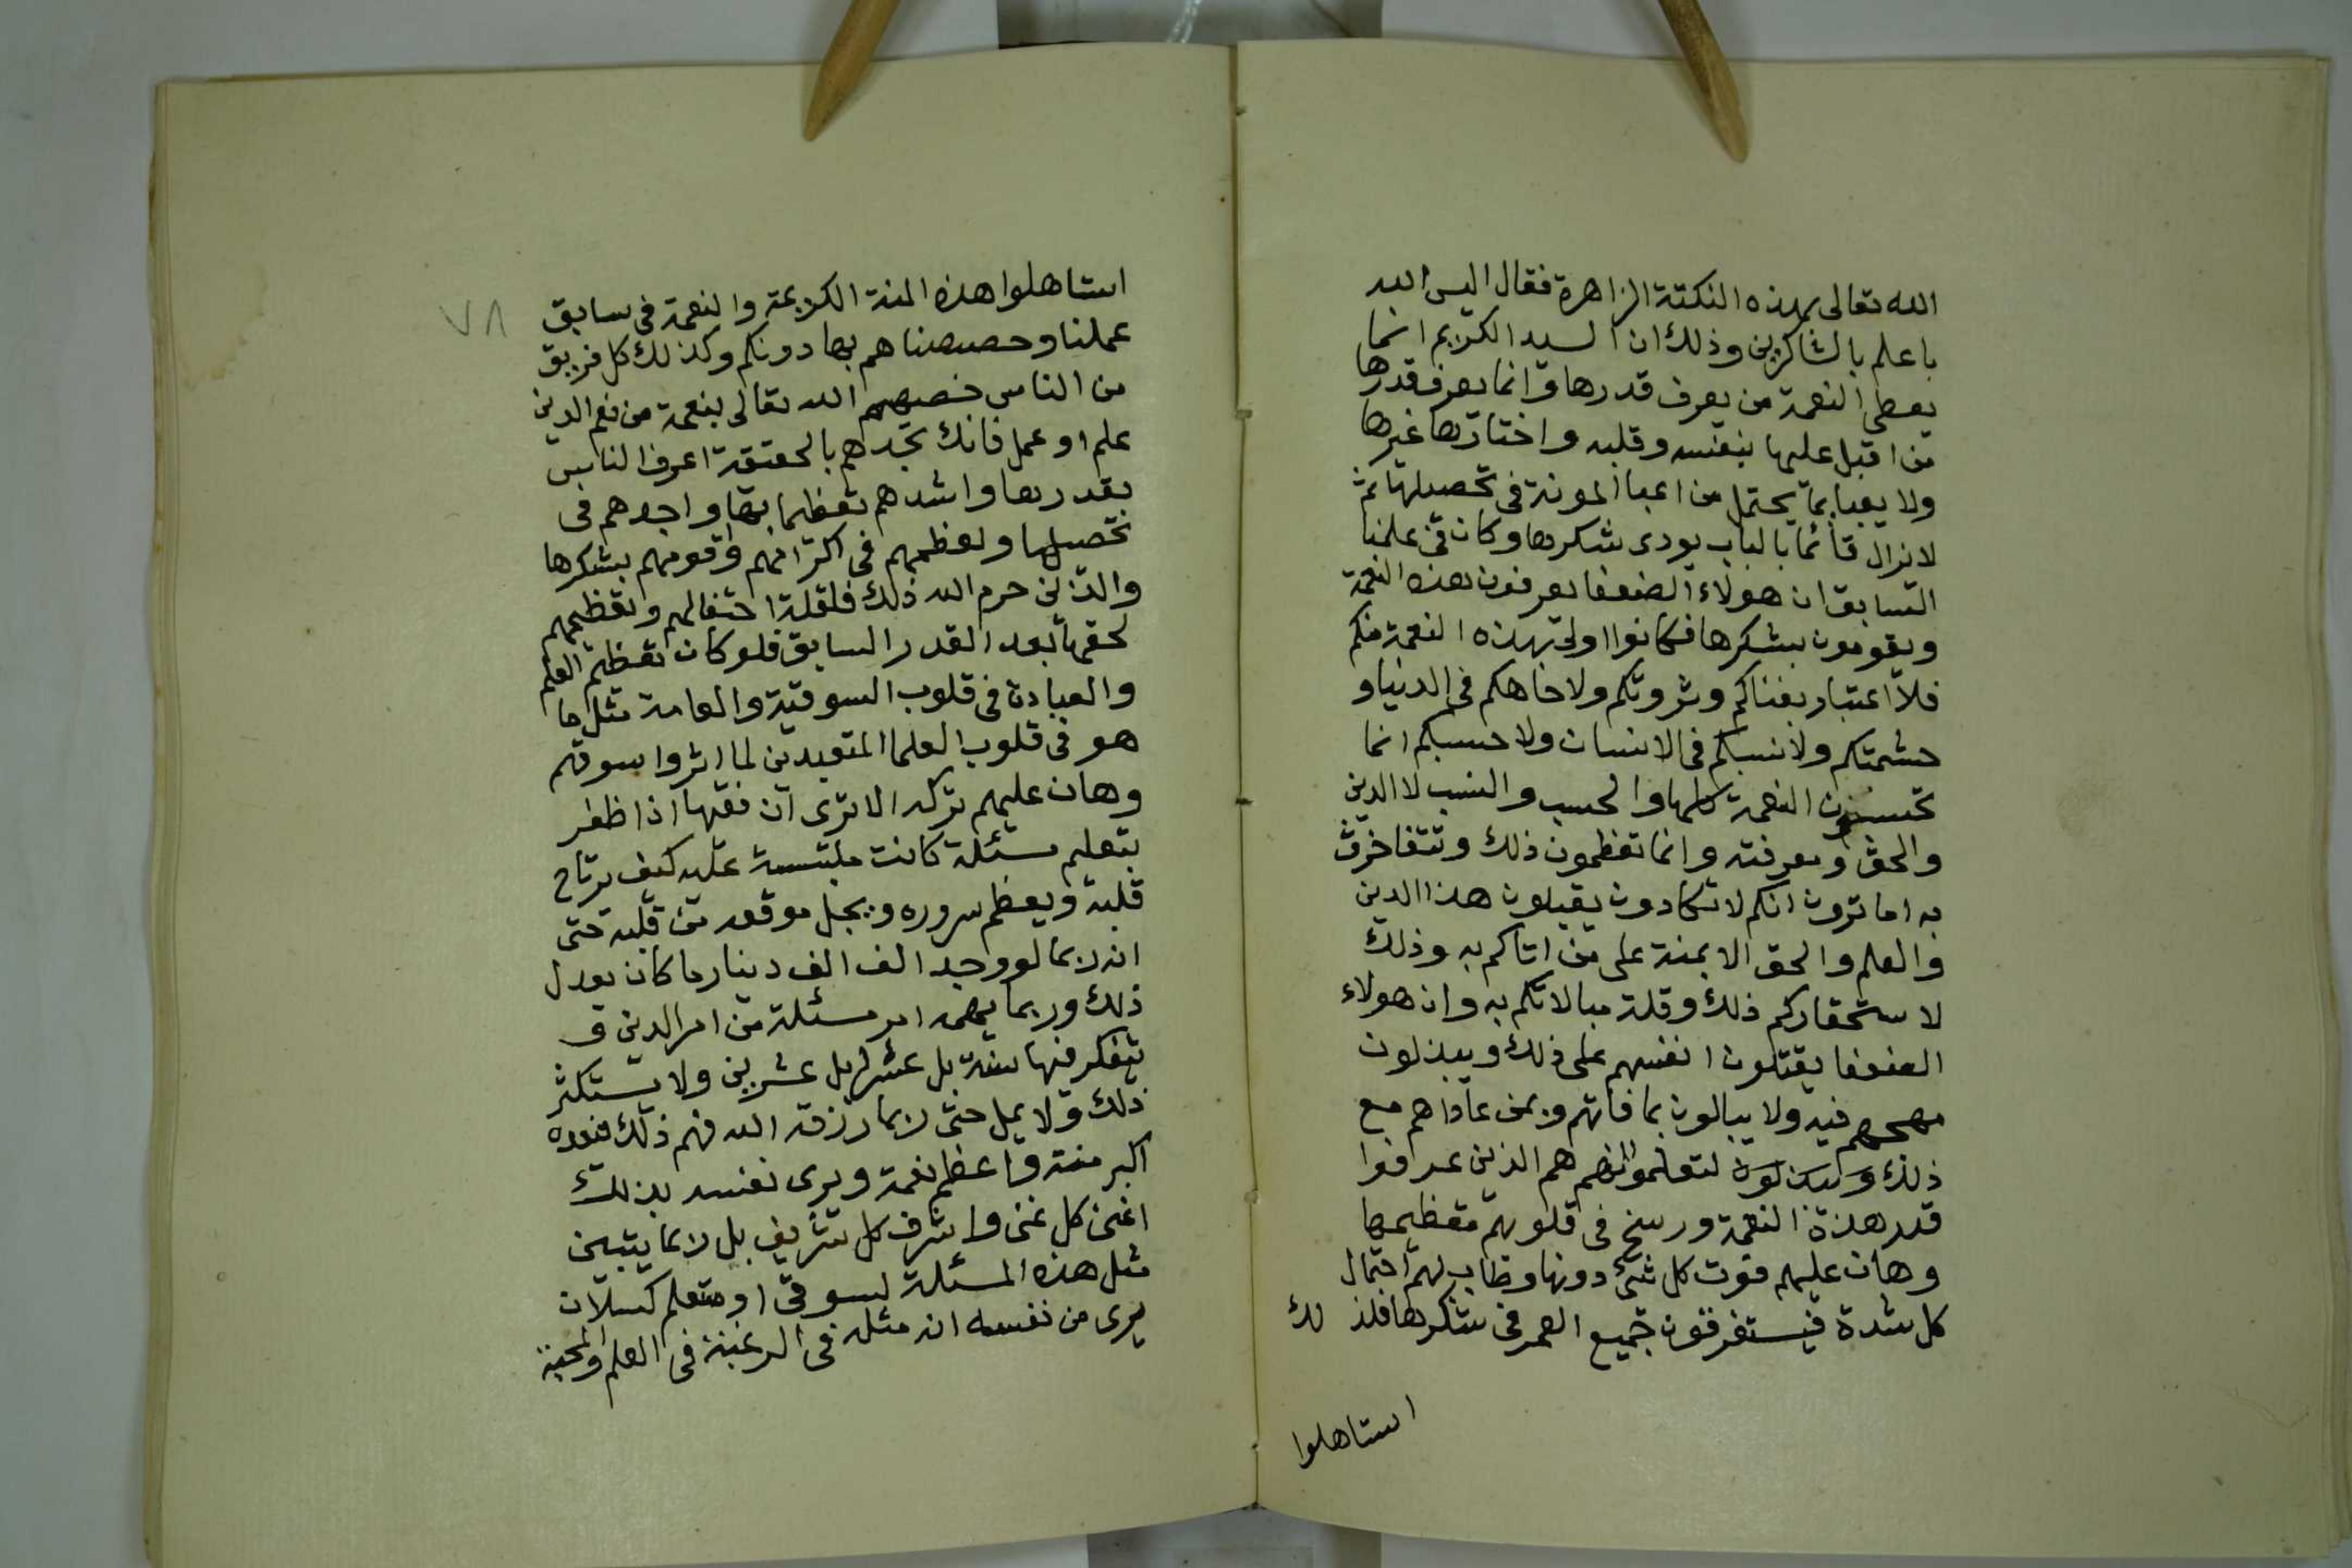 الله تعالى بهذه النكتة الزاهرة فقال اليس الله
باعلم بالشاكرين وذلك ان السيد الكريم انما
يعطى النعمة من يعرف قدرها وانما يعرف قدرها
من اقبل عليها بنفسه وقلبه واختارها غيرها
ولا يعبا بما يحتمل من اعبا المونة فى تحصيلها ثم
لا نزال قائما بالباب يودى شكرها وكان فى علمنا
السابق ان هولاء الضعفا يعرفون هذه النعمة
ويقومون بشكرها فكانوا اولى بهذه النعمة منكم
فلا اعتبار بغناكم وثروتكم ولا جاهكم فى الدنيا و
حشمتكم ولا نسبكم فى الانسان ولا حسبكم انما
تحسبون النعمة كلها والحسب والنسب لا الدين
والحق ومعرفته وانما تعظمون ذلك وتتفاخرون
به اما ترون انكم لا تكادون يقبلون هذا الدين
والعلم والحق الا بمنة على من اتاكم به وذلك
لا ستحقاركم ذلك وقلة مبالاتكم به وان هولاء
الضعفا يقتلون انفسهم على ذلك ويبذلون
مهجهم فيه ولا يبالون بما فاتهم وبمن عاداهم مع
ذلك لتعلموا انهم هم الذين عرفوا
قدر هذة النعمة ورسخ فى قلوبهم تعظيمها
وهان عليهم فوت كل شئ دونها وطاب لهم احتمال
كل شدة فيستغرقون جميع العمر فى شكرها فلذ لك
استاهلوا
٧٨
استاهلوا هذه المنة الكريمة والنعمة فى سابق
عملنا وخصصناهم بها دونكم وكذلك كل فريق
من الناس خصهم الله تعالى بنعمة من نعم الدين
علم او عمل فانك تجدهم بالحقيقة اعرف الناس
بقدرها واشدهم تعظيما بها واجدهم فى
تحصيلها واعظمهم فى اكرامهم واقومهم بشكرها
والذين حرم الله ذلك فلقلة احتفالهم وتعظيمهم
لحقها بعد القدر السابق فلو كان تعظيم العلم
والعبادة فى قلوب السوقية والعامة مثل ما
هو فى قلوب العلما المتعبدين لما اثروا سوقهم
وهان عليهم تركه الا ترى ان فقيها اذا ظفر
بتعليم مسئلة كانت ملتبسة عليه كيف يرتاح
قلبه ويعظم سروره ويجل موقعه من قلبه حتى
انه ربما لو وجد الف الف دينار ما كان يعدل
ذلك وربما يهمه امر مسئلة من امر الدين و
يتفكر فيها سنة بل عشرا بل عشرين ولا يستكثر
ذلك ولا يمل حتى ربما رزقه الله فهم ذلك فعده
اكبر منة واعظم نعمة ويرى نفسه بذلك
اغنى كل غنى واشرف كل شريف بل ربما يتبين
مثل هذه المسئلة لسوقى او متعلم كسلان
يرى من نفسه انه مثله فى الرغبة فى العلم والمحبة